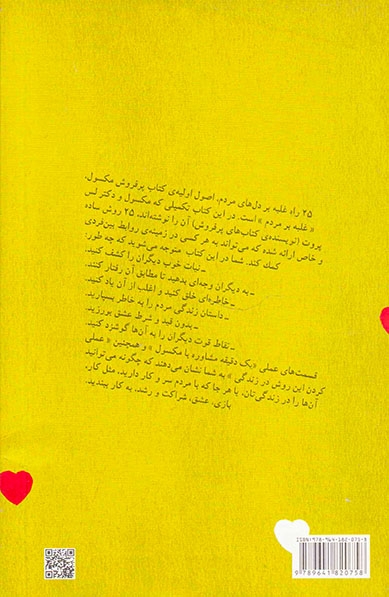 ۲۵ راه غلبه بر دل‌های مردم، اصول اولیه‌ی کتاب پرفروش مکسول،
«غلبه بر مردم» است. در این کتاب تکمیلی که مکسول و دکتر لس
پروت (نویسنده‌ی کتاب‌های پرفروش) آن را نوشته‌اند، ۲۵ روش ساده
و خاص ارائه شده که می‌تواند به هر کسی در زمینه‌ی روابط بین‌فردی
کمک کند. شما در این کتاب متوجه می‌شوید که چه طور:
ـ نیات خوب دیگران را کشف کنید.
ـ به دیگران وجه‌ای بدهید تا مطابق آن رفتار کنند.
ـ خاطره‌ای خلق کنید و اغلب از آن یاد کنید.
ـ داستان زندگی مردم را به خاطر بسپارید.
ـ بدون قید و شرط عشق بورزید.
ـ نقاط قوت دیگران را به آن‌ها گوشزد کنید.
قسمت‌های عملی «یک دقیقه مشاوره با مکسول» و همچنین «عملی
کردن این روش در زندگی» به شما نشان می‌دهند که چگونه می‌توانید
آن‌ها را در زندگی‌تان، با هر جا که با مردم سر و کار دارید، مثل کار،
بازی، عشق، شراکت و رشد، به کار ببندید.
ISBN: 978-964-182-075-8
9 789641 820758